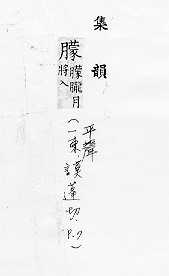 集韻
朦朦朧月將入
平聲
（一東、謨蓬切、P.9）